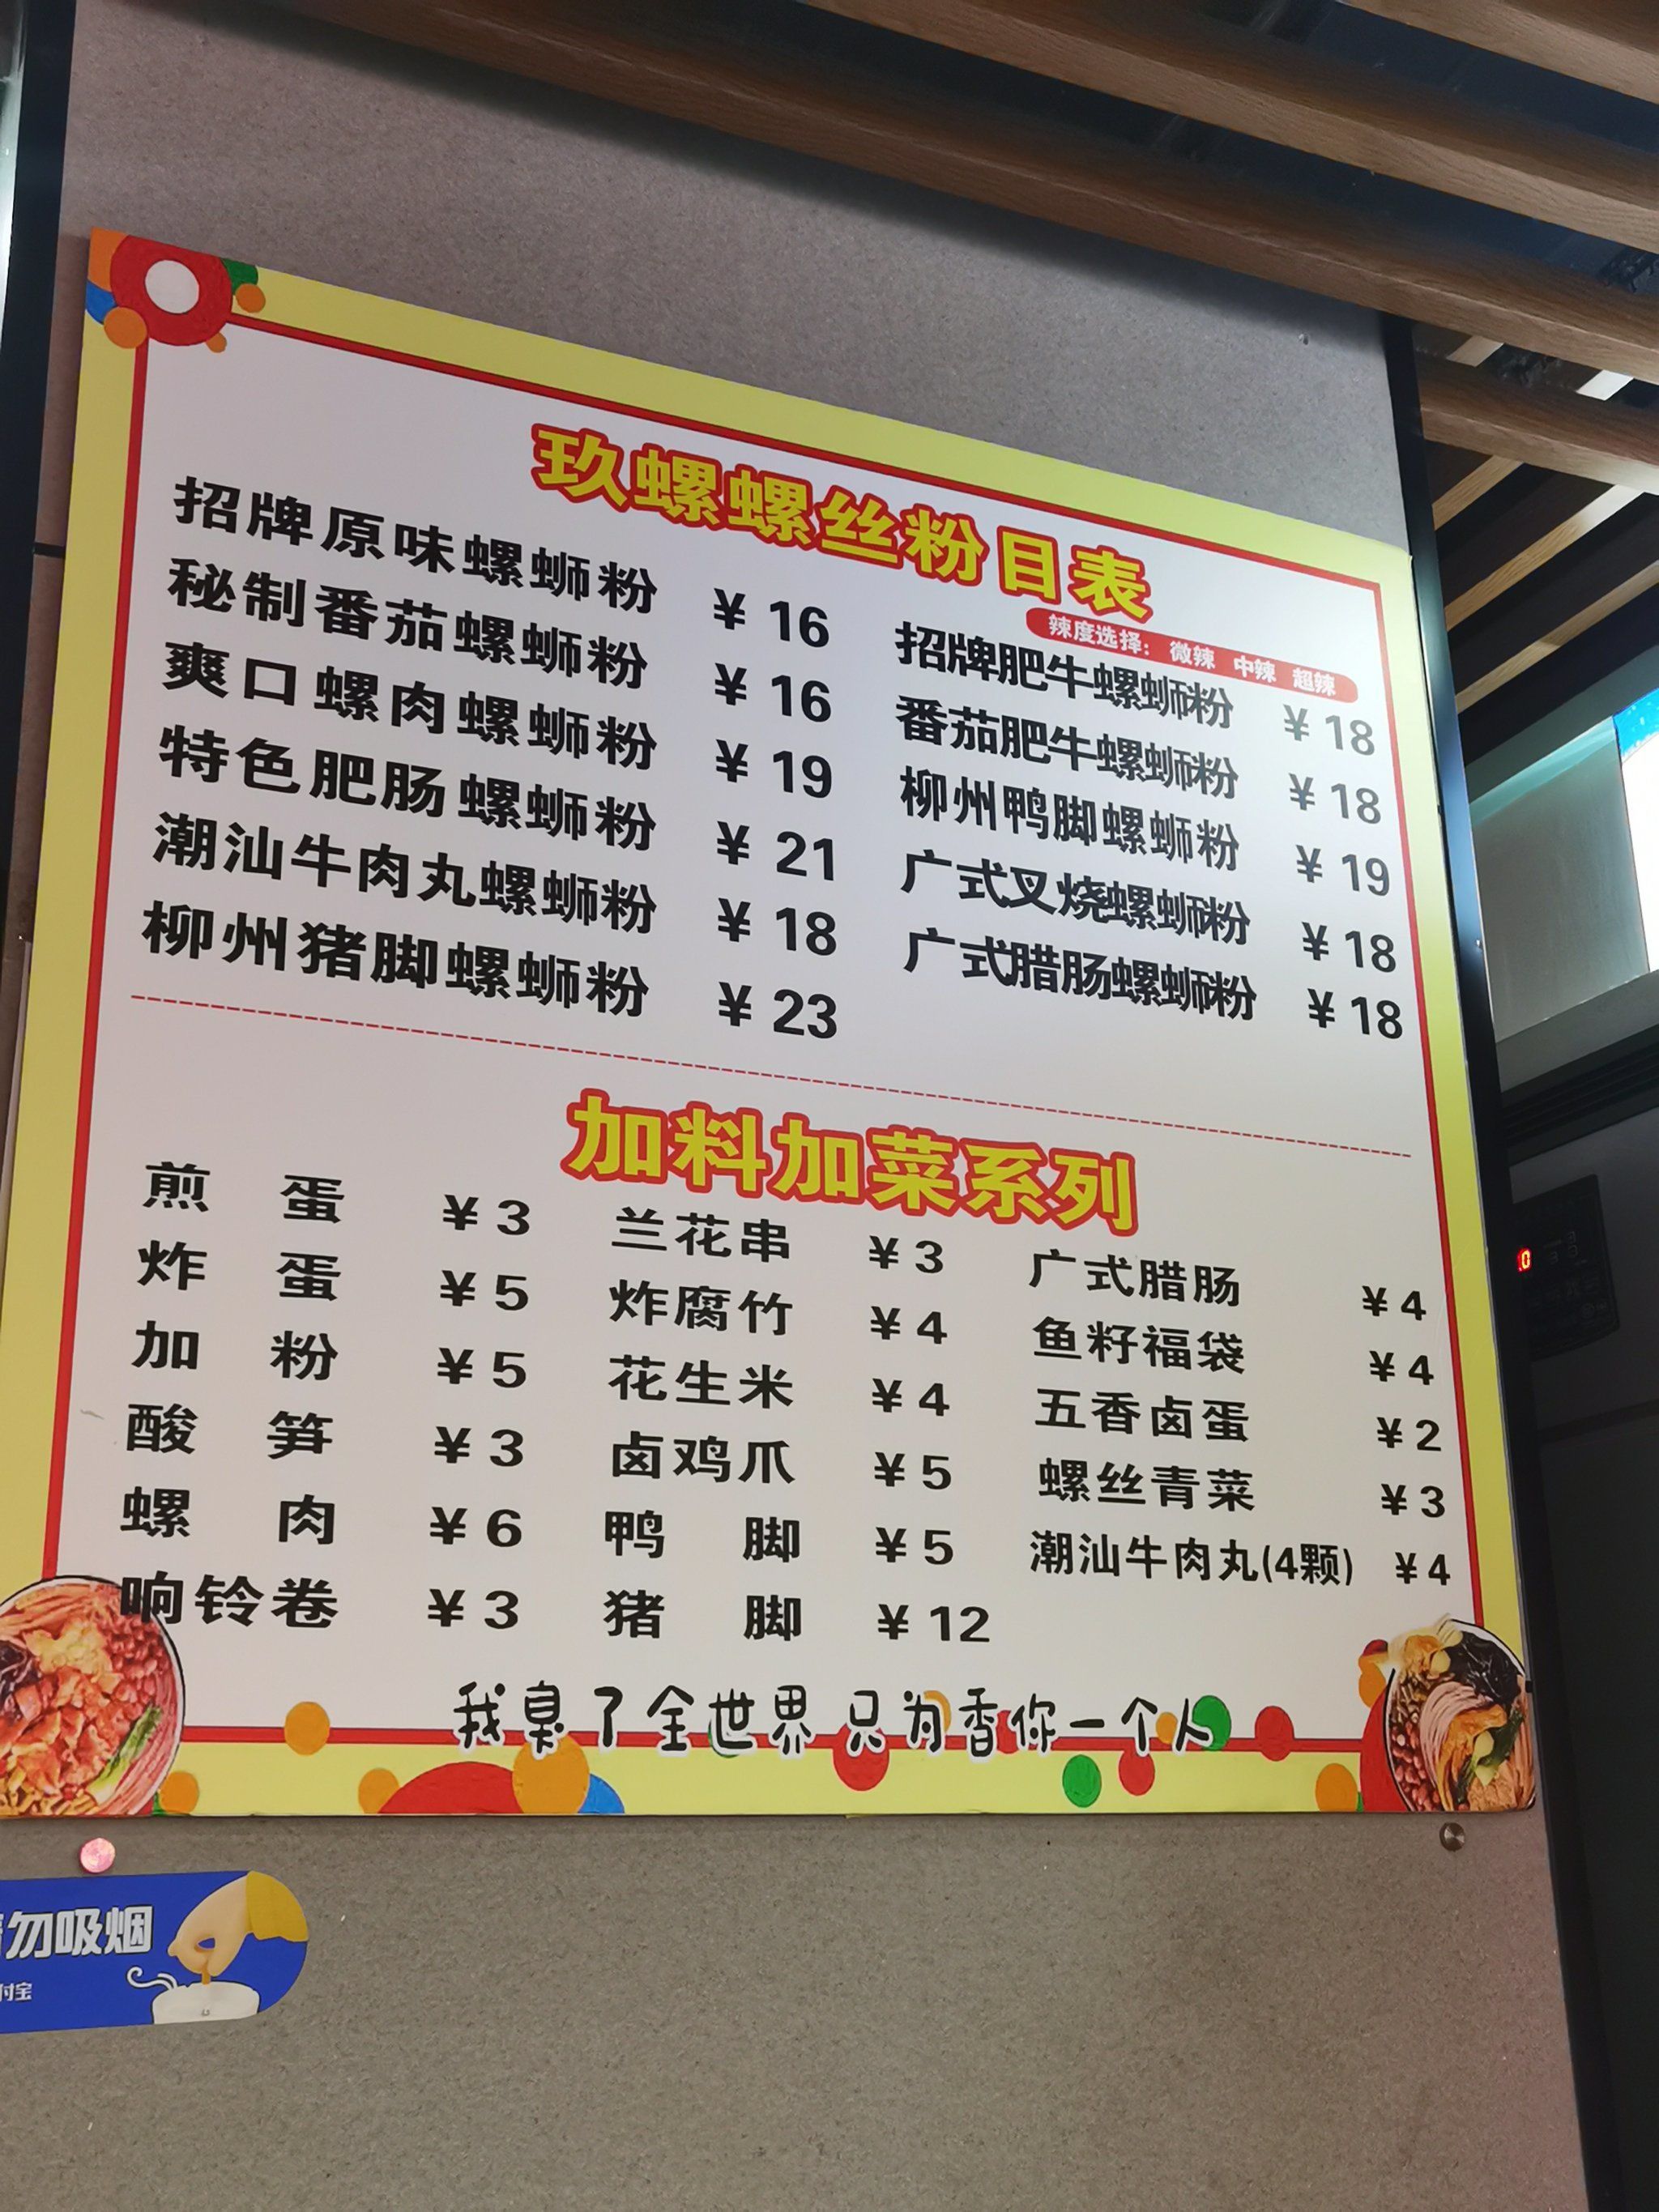 玖螺螺丝粉目表
辣度选择： 微辣 中辣 超辣
招牌原味螺蛳粉 ¥ 16
秘制番茄螺蛳粉 ¥ 16
爽口螺肉螺蛳粉 ¥ 19
特色肥肠螺蛳粉 ¥ 21
潮汕牛肉丸螺蛳粉 ¥ 18
柳州猪脚螺蛳粉 ¥ 23
招牌肥牛螺蛳粉 ¥ 18
番茄肥牛螺蛳粉 ¥ 18
柳州鸭脚螺蛳粉 ¥ 19
广式叉烧螺蛳粉 ¥ 18
广式腊肠螺蛳粉 ¥ 18
加料加菜系列
煎蛋 ¥ 3
炸蛋 ¥ 5
加粉 ¥ 5
酸笋 ¥ 3
螺肉 ¥ 6
响铃卷 ¥ 3
兰花串 ¥ 3
炸腐竹 ¥ 4
花生米 ¥ 4
卤鸡爪 ¥ 5
鸭脚 ¥ 5
猪脚 ¥ 12
广式腊肠 ¥ 4
鱼籽福袋 ¥ 4
五香卤蛋 ¥ 2
螺丝青菜 ¥ 3
潮汕牛肉丸(4颗) ¥ 4
我臭了全世界 只为香你一个人
勿吸烟
付宝